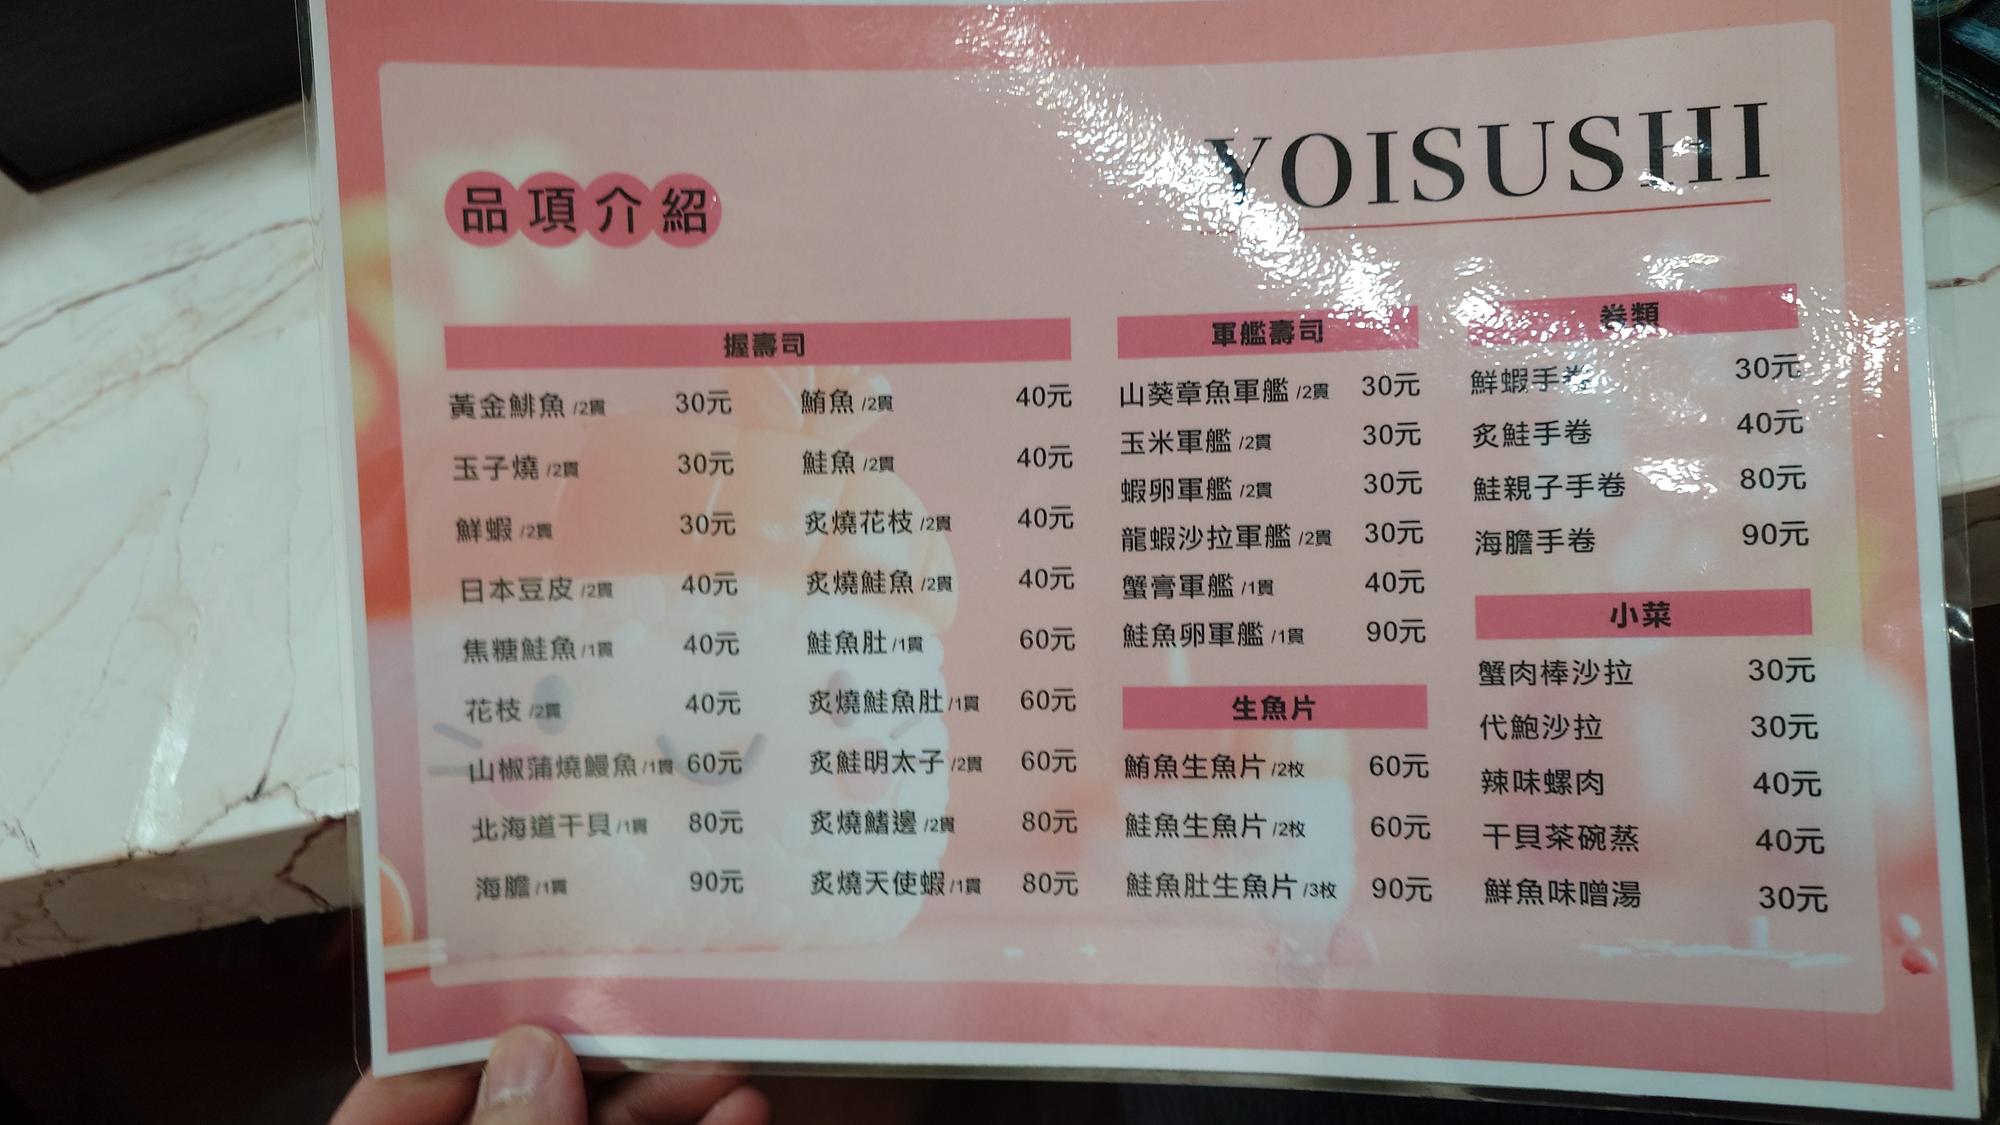 YOISUSHI
品項介紹
握壽司
黃金鯡魚 /2貫 30元
玉子燒 /2貫 30元
鮮蝦 /2貫 30元
日本豆皮 /2貫 40元
焦糖鮭魚 /1貫 40元
花枝 /2貫 40元
山椒蒲燒鰻魚 /1貫 60元
北海道干貝 /1貫 80元
海膽 /1貫 90元
鮪魚 /2貫 40元
鮭魚 /2貫 40元
炙燒花枝 /2貫 40元
炙燒鮭魚 /2貫 40元
鮭魚肚 /1貫 60元
炙燒鮭魚肚 /1貫 60元
炙鮭明太子 /2貫 60元
炙燒鰭邊 /2貫 80元
炙燒天使蝦 /1貫 80元
軍艦壽司
山葵章魚軍艦 /2貫 30元
玉米軍艦 /2貫 30元
蝦卵軍艦 /2貫 30元
龍蝦沙拉軍艦 /2貫 30元
蟹膏軍艦 /1貫 40元
鮭魚卵軍艦 /1貫 90元
生魚片
鮪魚生魚片 /2枚 60元
鮭魚生魚片 /2枚 60元
鮭魚肚生魚片 /3枚 90元
卷類
鮮蝦手卷 30元
炙鮭手卷 40元
鮭親子手卷 80元
海膽手卷 90元
小菜
蟹肉棒沙拉 30元
代鮑沙拉 30元
辣味螺肉 40元
干貝茶碗蒸 40元
鮮魚味噌湯 30元